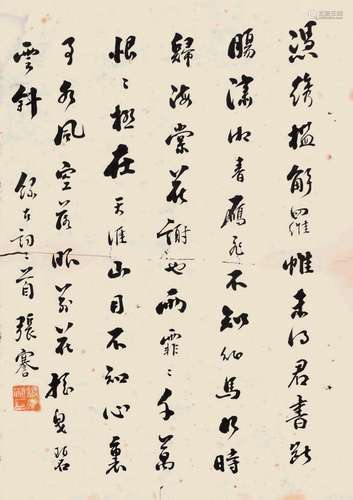 憑繡檻解羅帷未得君書斷
腸瀟湘春雁飛不知征馬幾時
歸海棠花謝也雨霏〻千萬
恨〻極在天涯山月不知心裏
事水風空落眼前花搖曳碧
雲斜
錄古詞二首 張謇